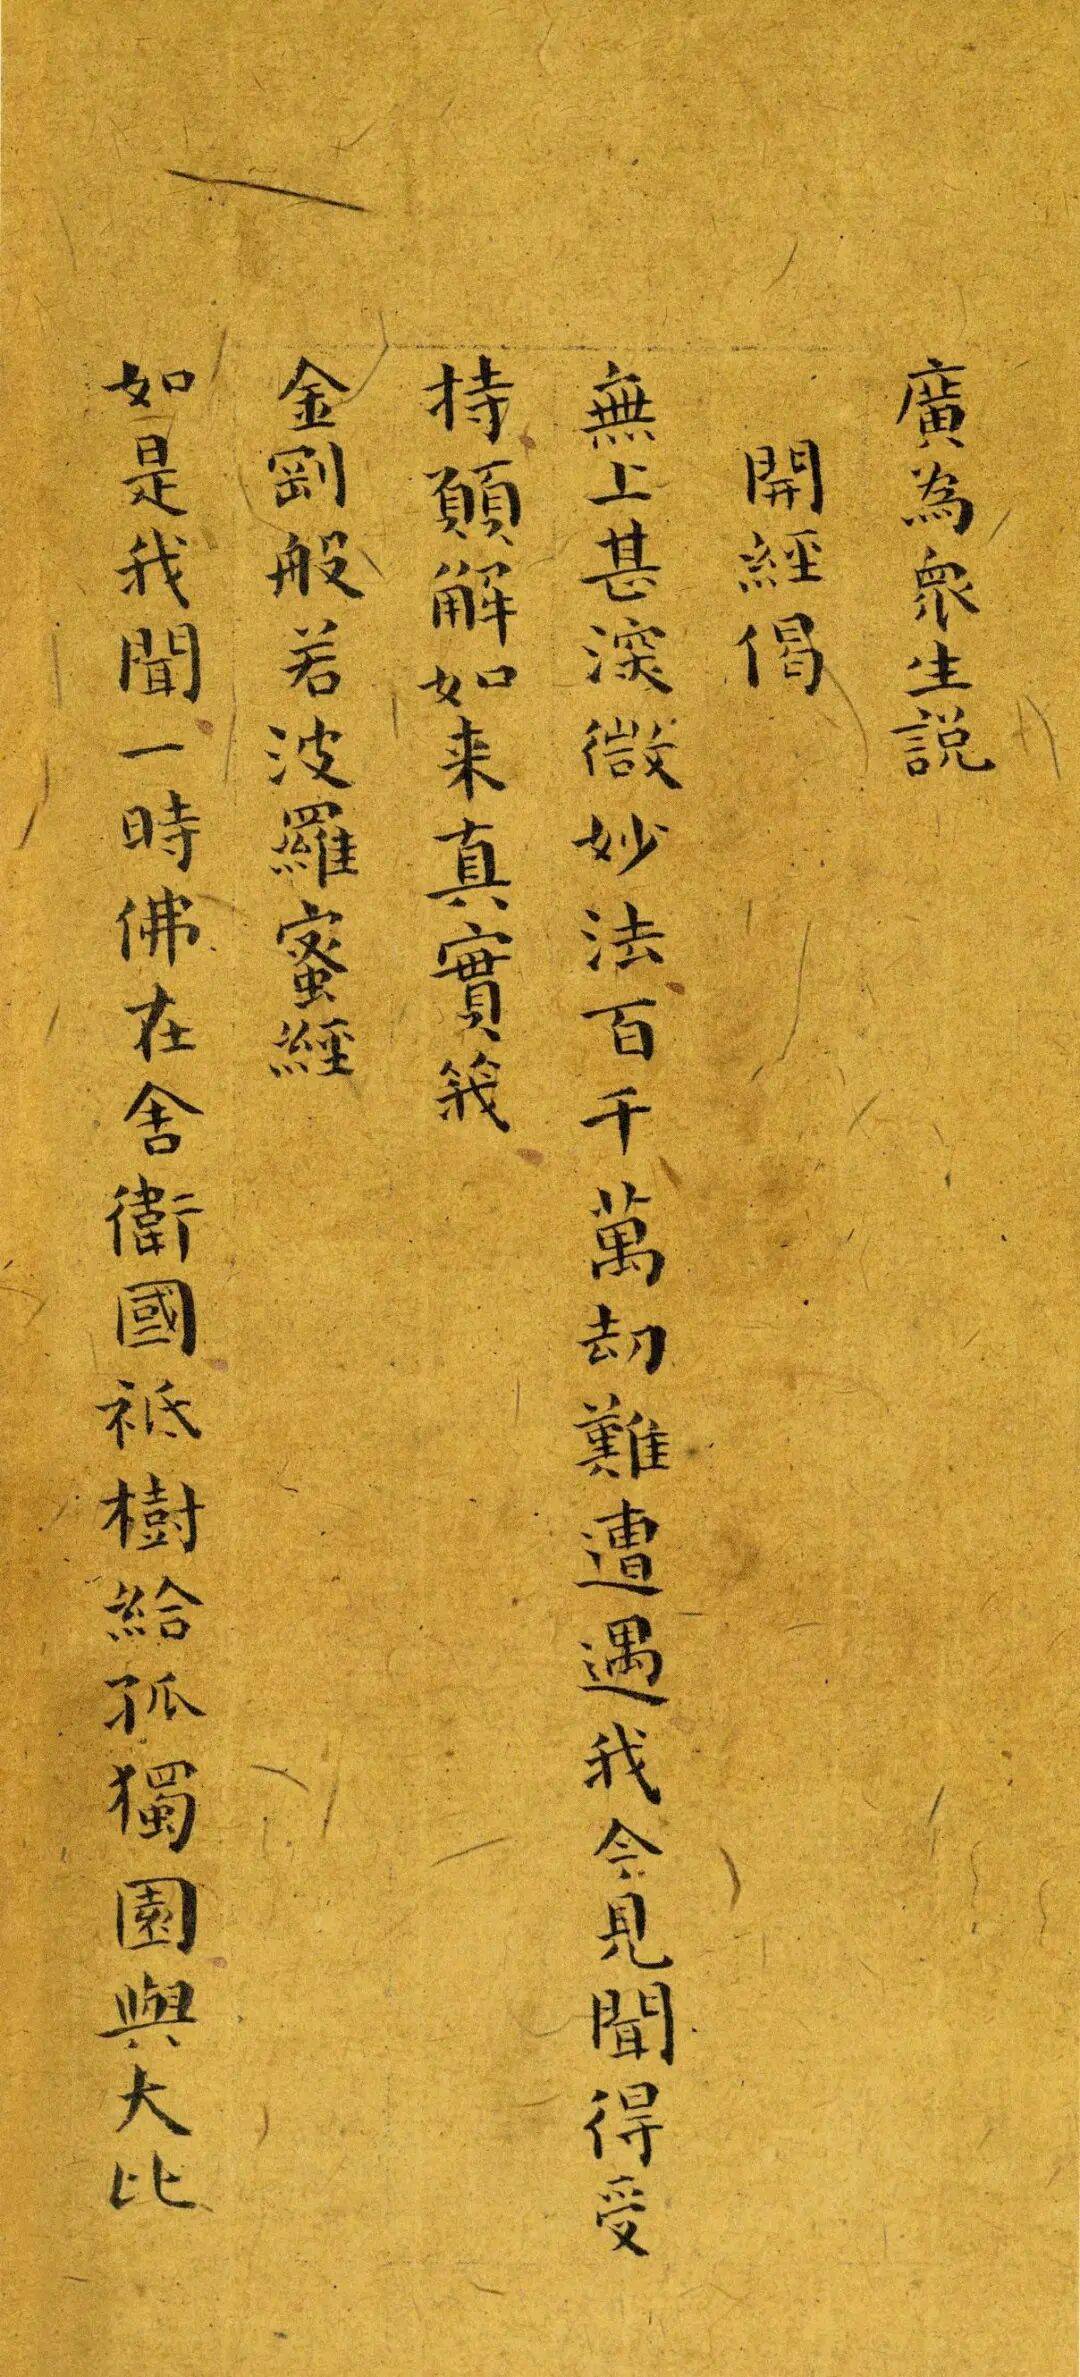 廣為衆生説
開經偈
無上甚深微妙法百千萬劫難遭遇我今見聞得受
持願解如来真實義
金剛般若波羅蜜經
如是我聞一時佛在舍衛國祇樹給孤獨園與大比